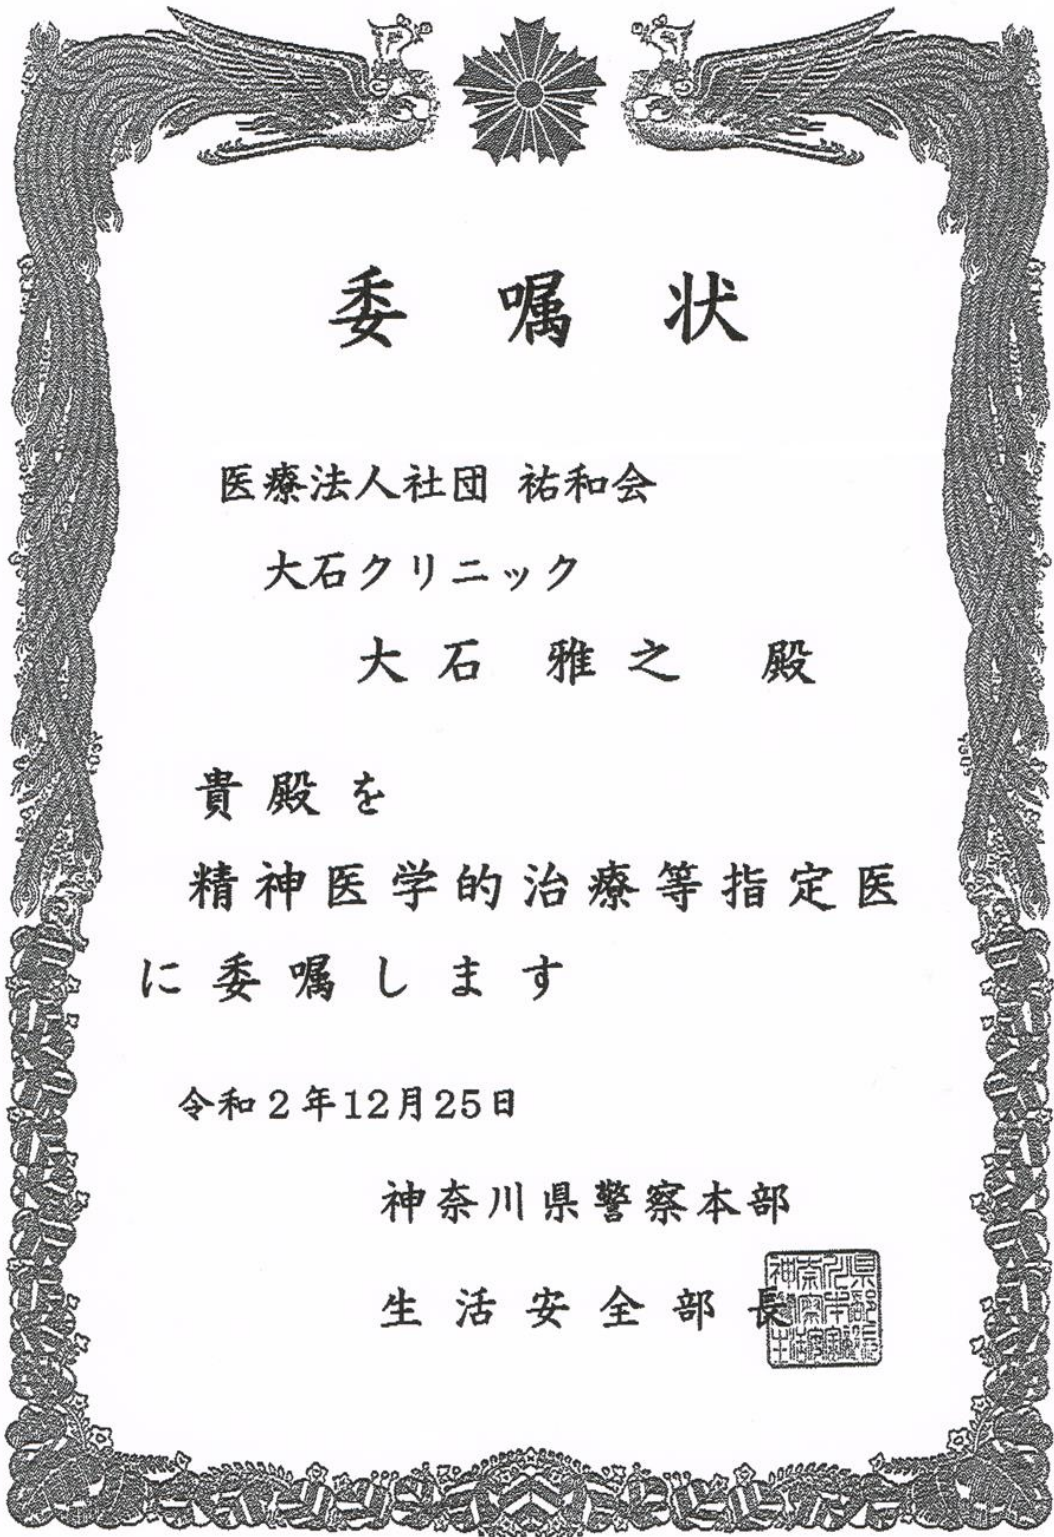 委嘱状
医療法人社団 祐和会
大石クリニック
大石 雅之 殿
貴殿を
精神医学的治療等指定医
に委嘱します
令和2年12月25日
神奈川県警察本部
生活安全部長